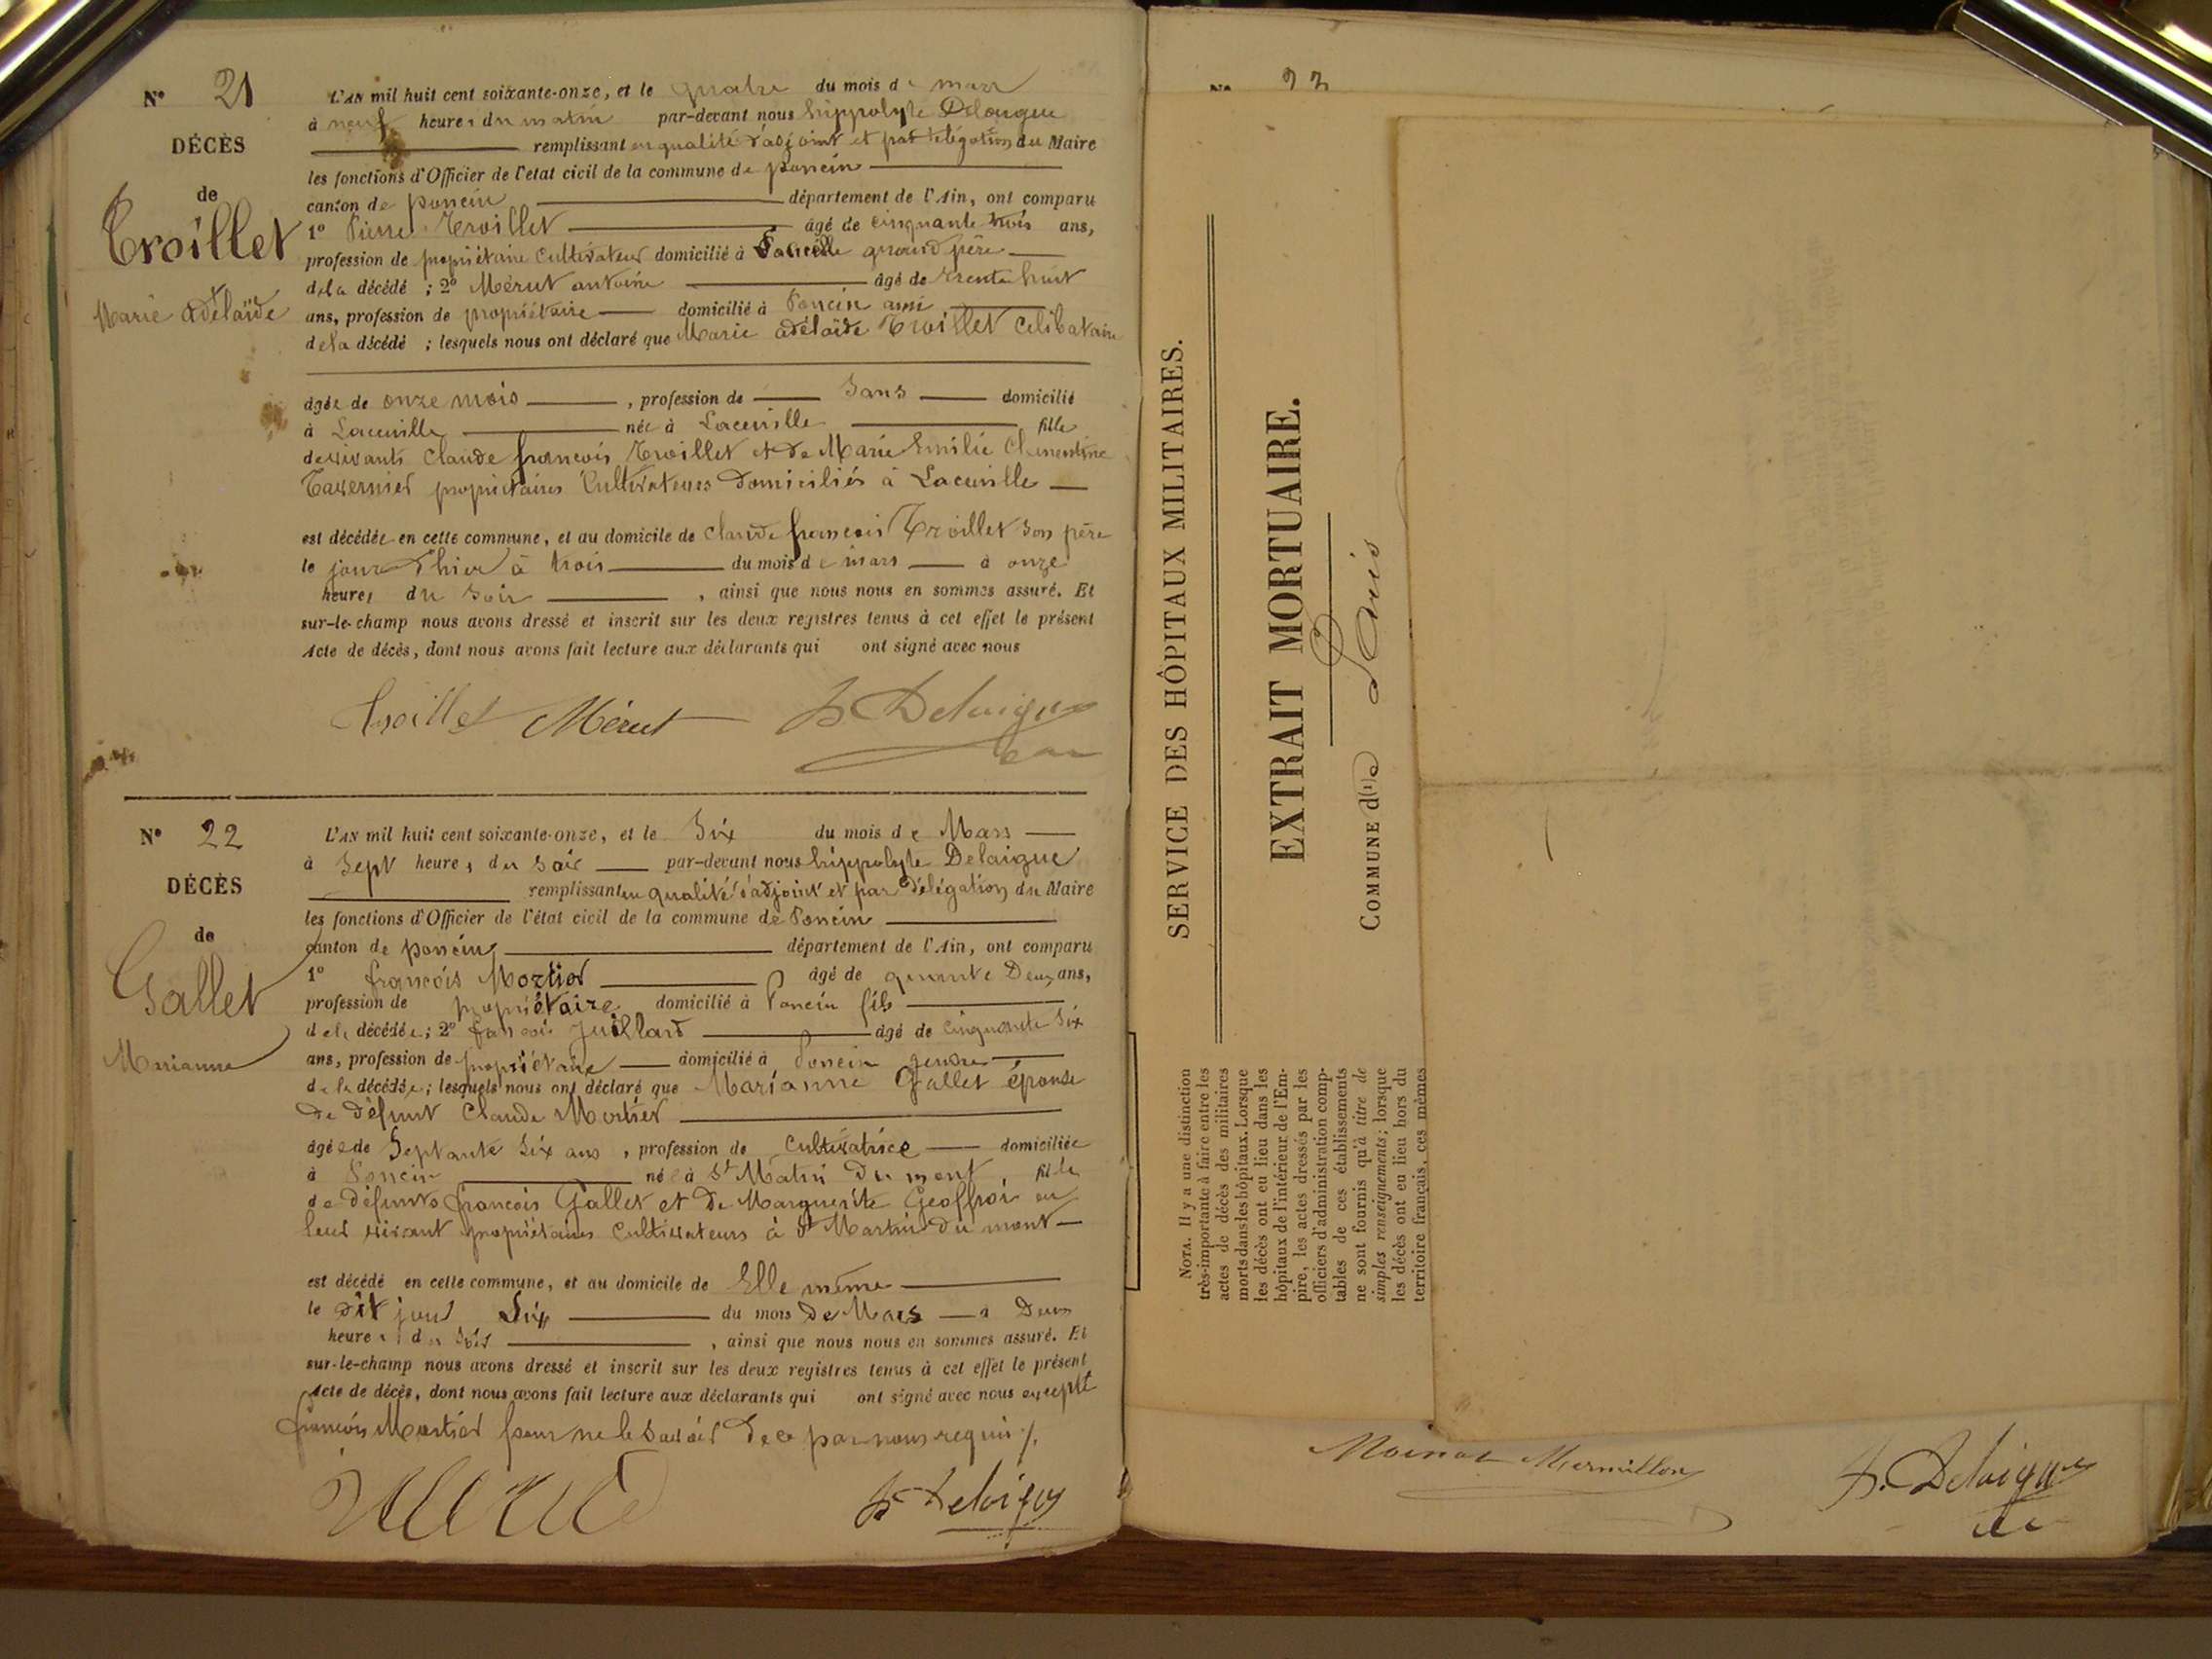 N° 21
DÉCÈS
de
Troillet
Marie adélaïde
L'AN mil huit cent soixante-onze, et le quatre du mois de mars
à neuf heures du matin par-devant nous hippolyte Delaigue
remplissant en qualité d'adjoint et par délégation du Maire
les fonctions d'Officier de l'état civil de la commune de poncin
canton de poncin département de l'Ain, ont comparu
1° Pierre Troillet âgé de cinquante trois ans,
profession de propriétaire cultivateur domicilié à grand père
de la décédé ; 2° Mérut antoine âgé de trente huit
ans, profession de propriétaire domicilié à Poncin ami
de la décédé ; lesquels nous ont déclaré que Marie adélaïde Troillet Célibataire
âgée de onze mois , profession de sans domicilié
à Lacuville née à Lacuville fille
de vivants Claude françois Troillet et de Marie Emilie Clementine
Tavernier propriétaires Cultivateurs domiciliés à Lacuville
est décédée en cette commune, et au domicile de Claude françois Troillet son père
le jour d'hier à trois du mois de mars à onze
heures du soir , ainsi que nous nous en sommes assuré. Et
sur-le-champ nous avons dressé et inscrit sur les deux registres tenus à cet effet le présent
Acte de décès, dont nous avons fait lecture aux déclarants qui ont signé avec nous
Troillet Mérut h Delaigue
N° 22
DÉCÈS
de
Gallet
Marianne
L'AN mil huit cent soixante-onze, et le Six du mois de Mars
à Sept heures du soir par-devant nous hippolyte Delaigue
remplissant en qualité d'adjoint et par délégation du Maire
les fonctions d'Officier de l'état civil de la commune de Poncin
canton de poncin département de l'Ain, ont comparu
1° françois Mortier âgé de quarante Deux ans,
profession de propriétaire domicilié à Poncin fils
de la décédée; 2° françois Juillard âgé de cinquante six
ans, profession de propriétaire domicilié à Poncin gendre
de la décédée; lesquels nous ont déclaré que Marianne Gallet épouse
de défunt Claude Mortier
âgée de Septante Six ans , profession de Cultivatrice domiciliée
à Poncin née à St Matin du mont fille
de défunts françois Gallet et de Marguerite Geoffroi en
leur vivant propriétaires Cultivateurs à St Martin du mont
est décédé en cette commune, et au domicile de Elle même
le dit jour Six du mois De Mars à Deux
heures du soir , ainsi que nous nous en sommes assuré. Et
sur-le-champ nous avons dressé et inscrit sur les deux registres tenus à cet effet le présent
Acte de décès, dont nous avons fait lecture aux déclarants qui ont signé avec nous excepté
françois Mortier pour ne le savoir de ce par nous requis
h Delaigue
N° 23
SERVICE DES HÔPITAUX MILITAIRES.
EXTRAIT MORTUAIRE.
COMMUNE d(1)e Paris
NOTA. Il y a une distinction
très-importante à faire entre les
actes de décès des militaires
morts dans les hôpitaux. Lorsque
les décès ont eu lieu dans les
hôpitaux de l'intérieur de l'Em-
pire, les actes dressés par les
officiers d'administration comp-
tables de ces établissements
ne sont fournis qu'à titre de
simples renseignements; lorsque
les décès ont eu lieu hors du
territoire français, ces mêmes
Moinat Mermillon h. Delaigue